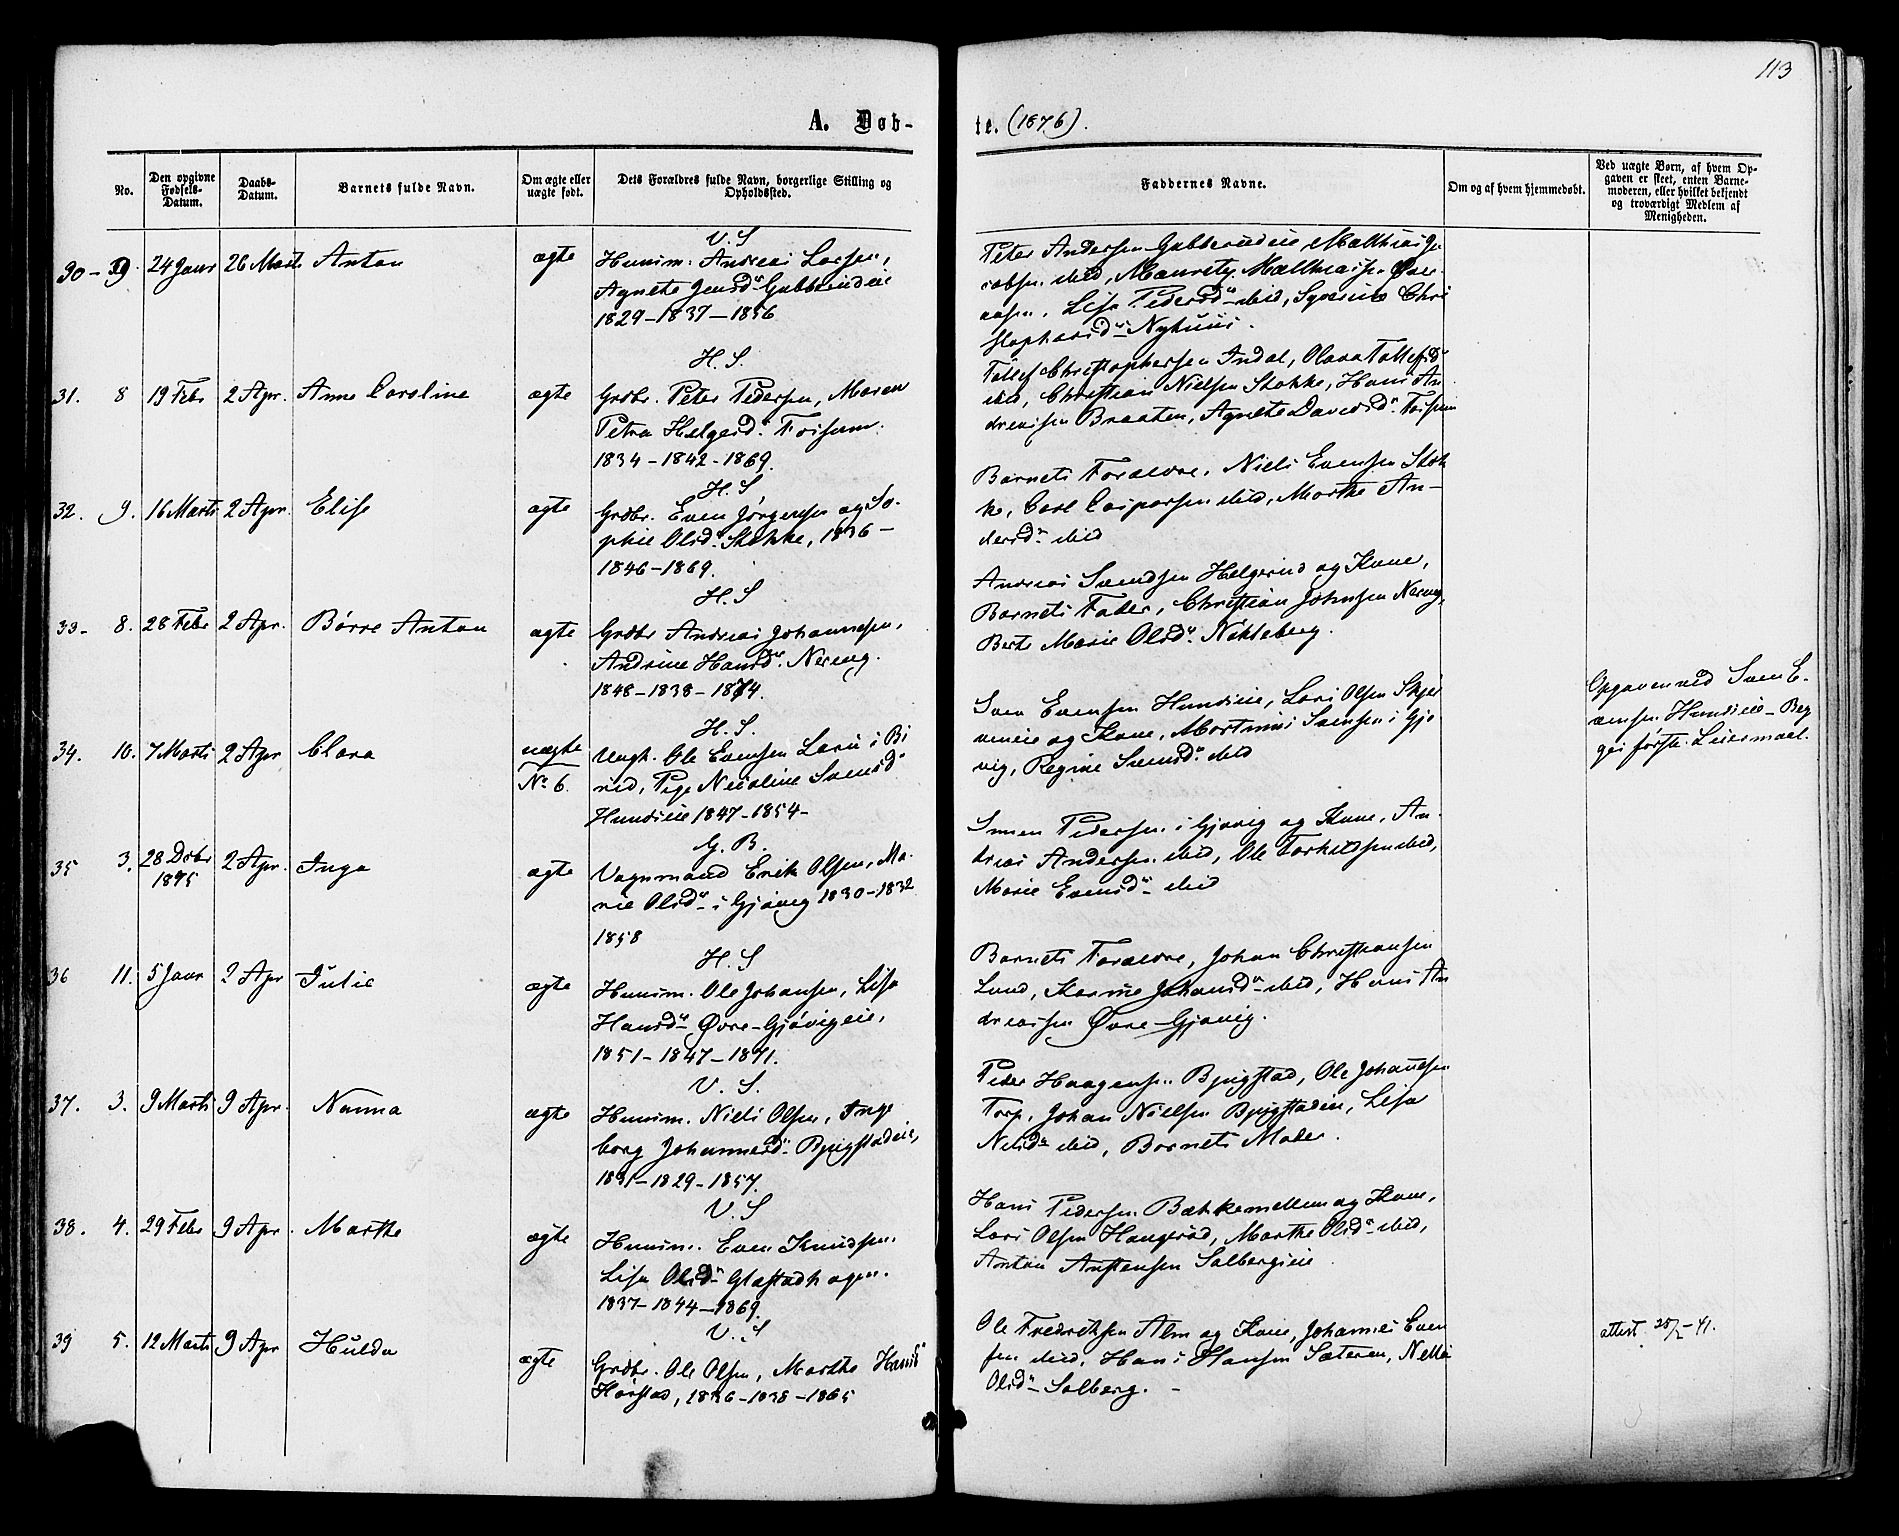 113
A. Døb-
te. (1876).
No.
Den opgivne Fødsels-Datum.
Daabs-Datum.
Barnets fulde Navn.
Om ægte eller uægte født.
Dets Forældres fulde Navn, borgerlige Stilling og Opholdssted.
Faddernes Navne.
Om og af hvem hjemmedøbt.
Ved uægte Børn, af hvem Op-
gaven er skeet, enten Barne-
moderen, eller hvilket bekjendt
og troværdigt Medlem af
Menigheden.
V. S
30 - 24 Janr 26 Marts Anton ægte Huusm. Andreas Larsen,
Agnete Jensdr
1829 - 1837 - 1856
Peter Andersen Mathias Ja-
cobsen ibid, Mauritz Mathiass.
Lisa Pedersdr ibid, Chri
stophersdr Nyhuus.
H. S.
31. 8 19 Febr 2 Apr. Anne Caroline ægte Grdbr. Peter Pedersen, Maren
Petra Helgesd.
1834 - 1842 - 1869.
Tollef Christophersen Indal, Olava Tollefsdr
ibid, Christian Nielsen Stokke, Hans An
dreasen Braaten, Agnete Davidsdr
H. S
32. 9. 16 Marts 2 Apr. Elise ægte Grdbr. Even Jørgensen og So-
phie Olsdr Stokke, 1836 -
1846 - 1869.
Barnets Forældre, Niels Evensen Stok
ke, Carl Caspersen ibid, Marthe An-
dersdr ibid
H. S
33 - 8. 28 Febr 2 Apr. Børre Anton ægte Grdbr Andreas Johannesen,
Andrine Hansdr Nereng.
1848 - 1838 - 1874.
Andreas Svendsen Helgerud og Kone,
Barnets Fader, Christian Johnsen Nereng,
Berte Marie Olsdr Nikleberg.
H. S.
34. 10. 7 Marts 2 Apr Clara uægte
No 6.
Ungk. Ole Evensen Lørn i Bi
rid, Pige Nicoline Svensdr
Hundseie 1847 - 1854 -
Sven Evensen Hundseie, Lars Olsen Skjer
veneie og Kone, Martinus Svensen i Gjø
vig, Regine Svensdr ibid
Opgaven ved Sven E-
vensen Hundseie - Beg
ges første Leiermaal.
G. B.
35 3. 28 Dcbr
1875 2 Apr. Inga ægte Vognmand Erik Olsen, Ma-
rie Olsdr i Gjøvig 1830 - 1832
1858
Simen Pedersen i Gjøvig og Kone, An-
dreas Andersen ibid, Ole Torkildsen ibid,
Marie Evensdr ibid
H. S
36 11. 5 Janr 2 Apr Julie ægte Huusm. Ole Johansen, Lisa
Hansdr Øvre-Gjøvigeie,
1851 - 1847 - 1871.
Barnets Forældre, Johan Christiansen
Lund, Karine Johansdr ibid, Hans An
dreasen Øvre-Gjøvig.
V. S.
37. 3. 9 Marts 9 Apr. Nanna ægte Huusm. Niels Olsen, Inge
borg Johannesdr Bjugstadeie,
1831 - 1829 - 1857.
Peder Haagensen Bjugstad, Ole Johansen
Torp, Johan Nielsen Bjugstadeie, Lisa
Nielsdr ibid, Barnets Moder.
V. S
38. 4. 29 Febr 9 Apr. Marthe ægte Huusm. Even Knudsen,
Lisa Olsdr Glæstadhagen.
1837 - 1844 - 1869.
Hans Pedersen Bækkemellem og Kone,
Lars Olsen Haugerød, Marthe Olsdr ibid,
Anton Anstensen Solbergseie
V. S
39 5. 12 Marts 9 Apr Hulda ægte Grdbr. Ole Olsen, Marthe Hansdr
Hørstad, 1836 - 1838 - 1865
Ole Fredriksen Alm og Kone, Johannes Even
sen ibid, Hans Hansen Sæteren,
Olsdr Solberg. -
attest. 28/2 - 41.